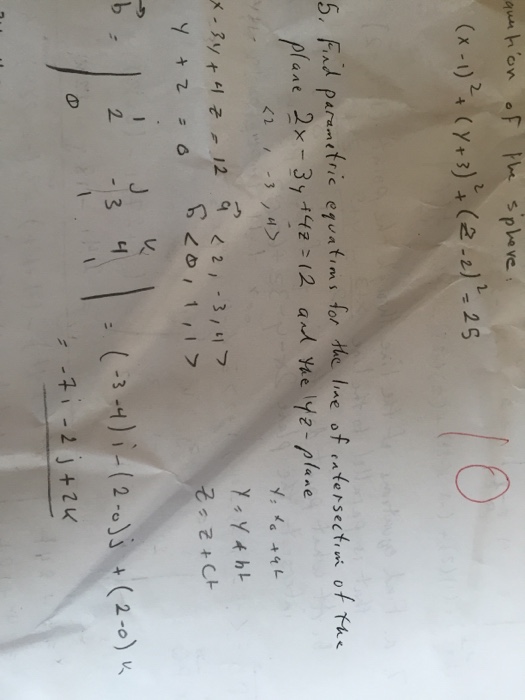 quation of the sphere:
(x-1)² + (y+3)² + (z-2)² = 25
10
5. Find parametric equations for the line of intersection of the
plane 2x - 3y + 4z = 12 and the yz-plane
<2, -3, 4>
x - 3y + 4z = 12 a <2, -3, 4>
y + z = 0 b <0, 1, 1>
y = y + bt
z = z + ct
b = | i j k
2 -3 4
0 1 1 | = (-3-4)i - (2-0)j + (2-0)k
= -7i - 2j + 2k